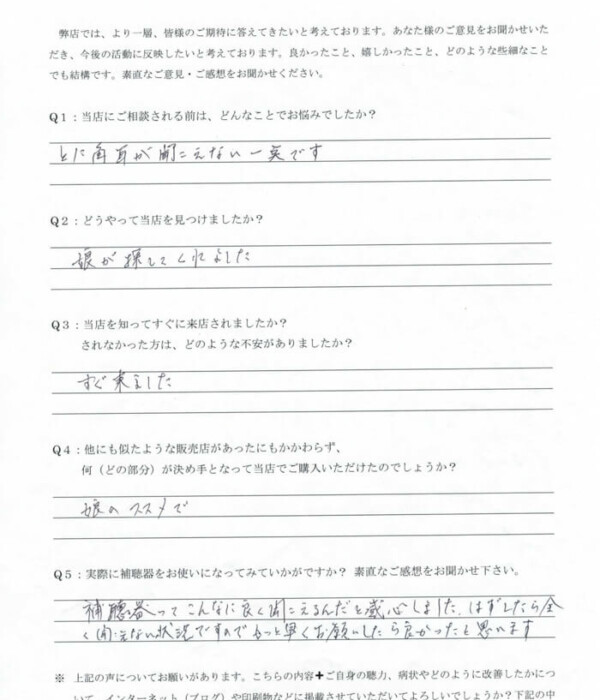 弊店では、より一層、皆様のご期待に答えてきたいと考えております。あなた様のご意見をお聞かせいた
だき、今後の活動に反映したいと考えております。良かったこと、嬉しかったこと、どのような些細なこと
でも結構です。素直なご意見・ご感想をお聞かせください。
Q1：当店にご相談される前は、どんなことでお悩みでしたか？
とに角耳が聞こえない一実です
Q2：どうやって当店を見つけましたか？
娘が探してくれました
Q3：当店を知ってすぐに来店されましたか？
されなかった方は、どのような不安がありましたか？
すぐ来ました
Q4：他にも似たような販売店があったにもかかわらず、
何（どの部分）が決め手となって当店でご購入いただけたのでしょうか？
娘のススメで
Q5：実際に補聴器をお使いになってみていかがですか？ 素直なご感想をお聞かせ下さい。
補聴器ってこんなに良く聞こえるんだと感心しました。はずしたら全
く聞こえない状況ですのでもっと早くお願いしたら良かったと思います
※ 上記の声についてお願いがあります。こちらの内容+ご自身の聴力、病状やどのように改善したかにつ
いて、インターネット（ブログ）や印刷物などに掲載させていただいてよろしいでしょうか？下記の中